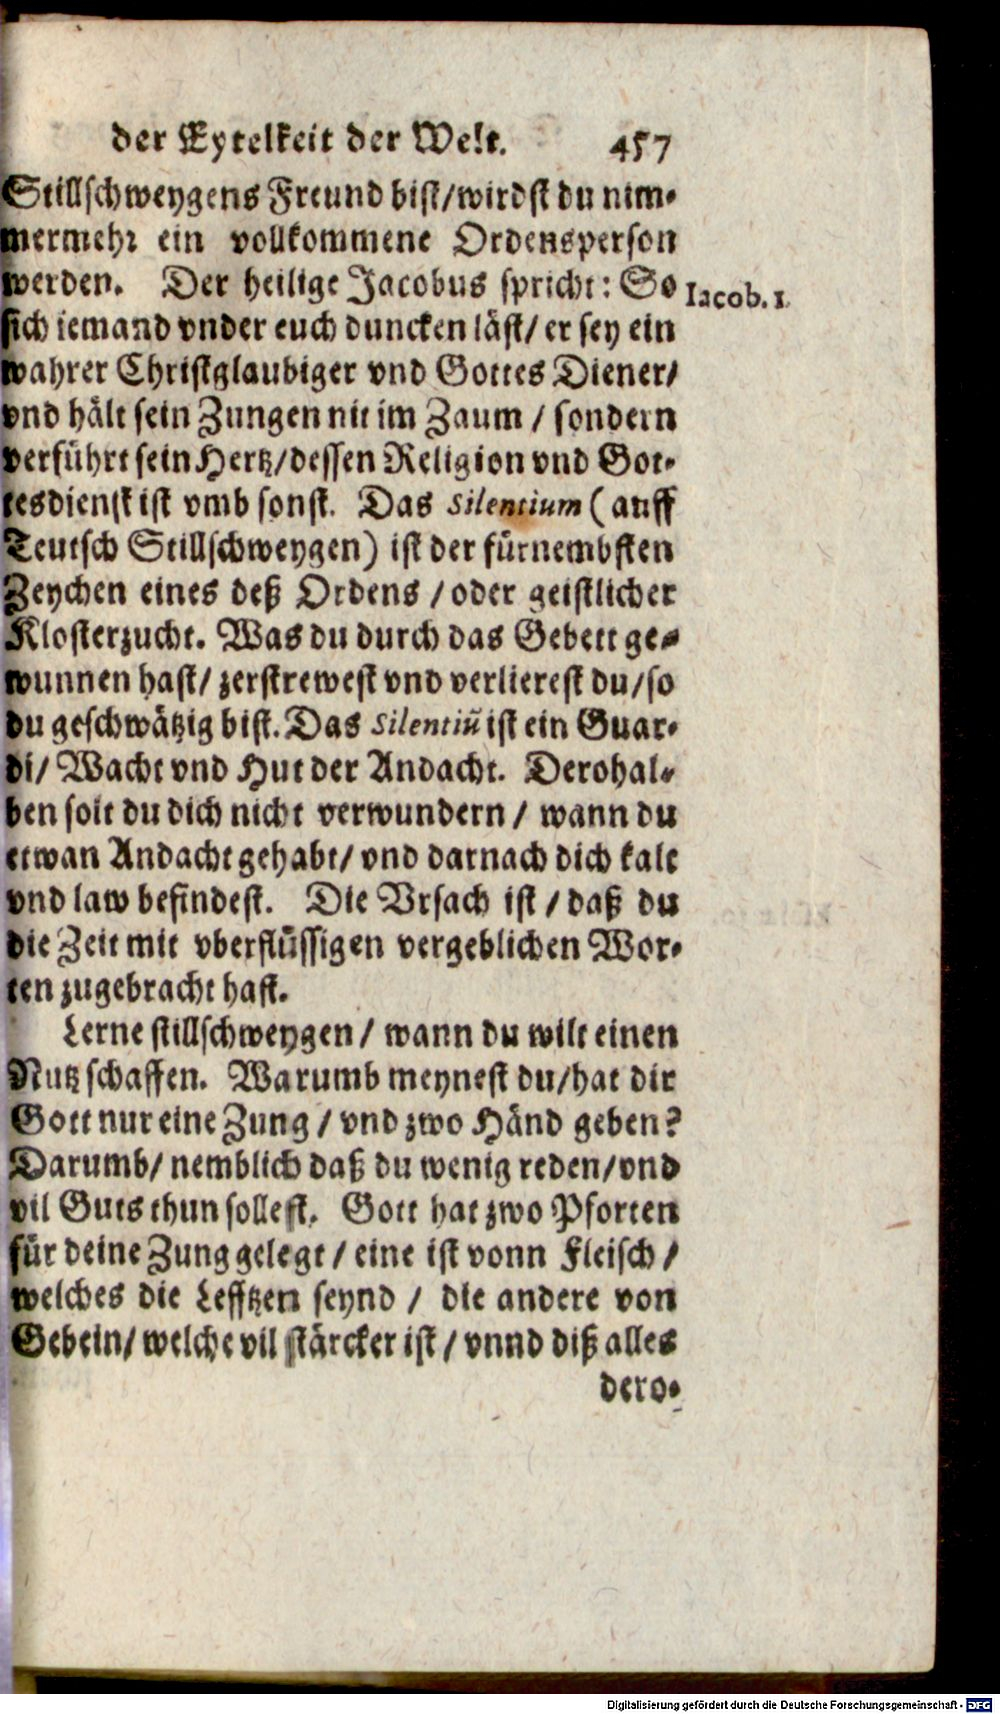 der Eytelkeit der Welt. 457
Stillschweygens Freund bist/wirdst du nim-
mermehr ein vollkommene Ordensperson
werden. Der heilige Jacobus spricht: So Iacob. 1.
sich iemand vnder euch duncken läst/ er sey ein
wahrer Christglaubiger vnd Gottes Diener/
vnd hält sein Zungen nit im Zaum / sondern
verführt sein Hertz/dessen Religion vnd Got-
tesdienst ist vmb sonst. Das Silentium (auff
Teutsch Stillschweygen) ist der fürnembsten
Zeychen eines deß Ordens / oder geistlicher
Klosterzucht. Was du durch das Gebett ge-
wunnen hast/ zerstrewest vnd verlierest du/so
du geschwätzig bist. Das Silentiū ist ein Guar-
di/ Wacht vnd Hut der Andacht. Derohal-
ben solt du dich nicht verwundern / wann du
etwan Andacht gehabt/ vnd darnach dich kalt
vnd law befindest. Die Vrsach ist / daß du
die Zeit mit vberflüssigen vergeblichen Wor-
ten zugebracht hast.
Lerne stillschweygen / wann du wilt einen
Nutz schaffen. Warumb meynest du/hat dir
Gott nur eine Zung / vnd zwo Händ geben?
Darumb/ nemblich daß du wenig reden/vnd
vil Guts thun sollest. Gott hat zwo Pforten
für deine Zung gelegt / eine ist vonn Fleisch /
welches die Lefftzen seynd / die andere von
Gebein/ welche vil stärcker ist / vnnd diß alles
dero-
Digitalisierung gefördert durch die Deutsche Forschungsgemeinschaft - DFG